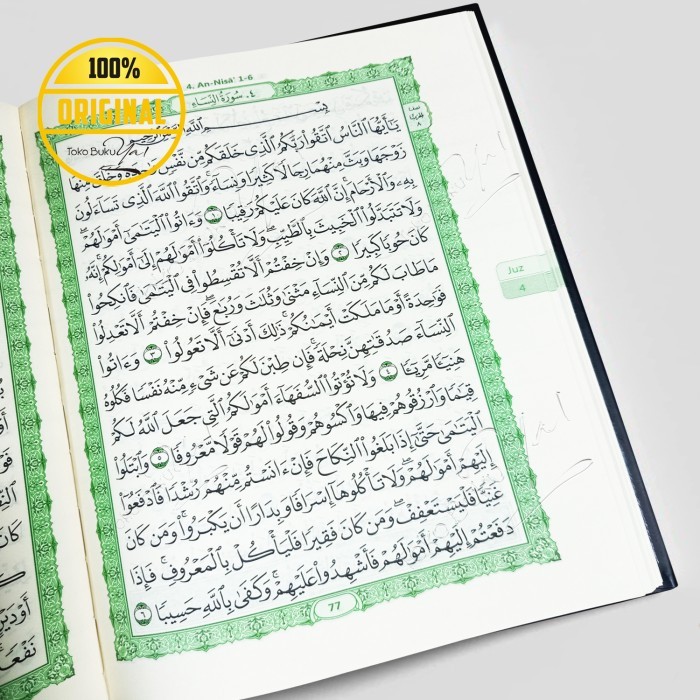 100%
ORIGINAL
Toko Buku
4. An-Nisā' 1-6
٤. سُورَةُ النِّسَاء
يَٰٓأَيُّهَا ٱلنَّاسُ ٱتَّقُوا۟ رَبَّكُمُ ٱلَّذِى خَلَقَكُم مِّن نَّفْسٍ وَٰحِدَةٍ وَخَلَقَ مِنْهَا
زَوْجَهَا وَبَثَّ مِنْهُمَا رِجَالًا كَثِيرًا وَنِسَآءً ۚ وَٱتَّقُوا۟ ٱللَّهَ ٱلَّذِى تَسَآءَلُونَ
بِهِۦ وَٱلْأَرْحَامَ ۚ إِنَّ ٱللَّهَ كَانَ عَلَيْكُمْ رَقِيبًا ١ وَءَاتُوا۟ ٱلْيَتَٰمَىٰٓ أَمْوَٰلَهُمْ ۖ
وَلَا تَتَبَدَّلُوا۟ ٱلْخَبِيثَ بِٱلطَّيِّبِ ۖ وَلَا تَأْكُلُوٓا۟ أَمْوَٰلَهُمْ إِلَىٰٓ أَمْوَٰلِكُمْ ۚ إِنَّهُۥ
كَانَ حُوبًا كَبِيرًا ٢ وَإِنْ خِفْتُمْ أَلَّا تُقْسِطُوا۟ فِى ٱلْيَتَٰمَىٰ فَٱنكِحُوا۟
مَا طَابَ لَكُم مِّنَ ٱلنِّسَآءِ مَثْنَىٰ وَثُلَٰثَ وَرُبَٰعَ ۖ فَإِنْ خِفْتُمْ أَلَّا تَعْدِلُوا۟
فَوَٰحِدَةً أَوْ مَا مَلَكَتْ أَيْمَٰنُكُمْ ۚ ذَٰلِكَ أَدْنَىٰٓ أَلَّا تَعُولُوا۟ ٣ وَءَاتُوا۟
ٱلنِّسَآءَ صَدُقَٰتِهِنَّ نِحْلَةً ۚ فَإِن طِبْنَ لَكُمْ عَن شَىْءٍ مِّنْهُ نَفْسًا فَكُلُوهُ
هَنِيٓـًٔا مَّرِيٓـًٔا ٤ وَلَا تُؤْتُوا۟ ٱلسُّفَهَآءَ أَمْوَٰلَكُمُ ٱلَّتِى جَعَلَ ٱللَّهُ لَكُمْ
قِيَٰمًا وَٱرْزُقُوهُمْ فِيهَا وَٱكْسُوهُمْ وَقُولُوا۟ لَهُمْ قَوْلًا مَّعْرُوفًا ٥ وَٱبْتَلُوا۟
ٱلْيَتَٰمَىٰ حَتَّىٰٓ إِذَا بَلَغُوا۟ ٱلنِّكَاحَ فَإِنْ ءَانَسْتُم مِّنْهُمْ رُشْدًا فَٱدْفَعُوٓا۟
إِلَيْهِمْ أَمْوَٰلَهُمْ ۖ وَلَا تَأْكُلُوهَآ إِسْرَافًا وَبِدَارًا أَن يَكْبَرُوا۟ ۚ وَمَن كَانَ
غَنِيًّا فَلْيَسْتَعْفِفْ ۖ وَمَن كَانَ فَقِيرًا فَلْيَأْكُلْ بِٱلْمَعْرُوفِ ۚ فَإِذَا
دَفَعْتُمْ إِلَيْهِمْ أَمْوَٰلَهُمْ فَأَشْهِدُوا۟ عَلَيْهِمْ ۚ وَكَفَىٰ بِٱللَّهِ حَسِيبًا ٦
77
Juz
4